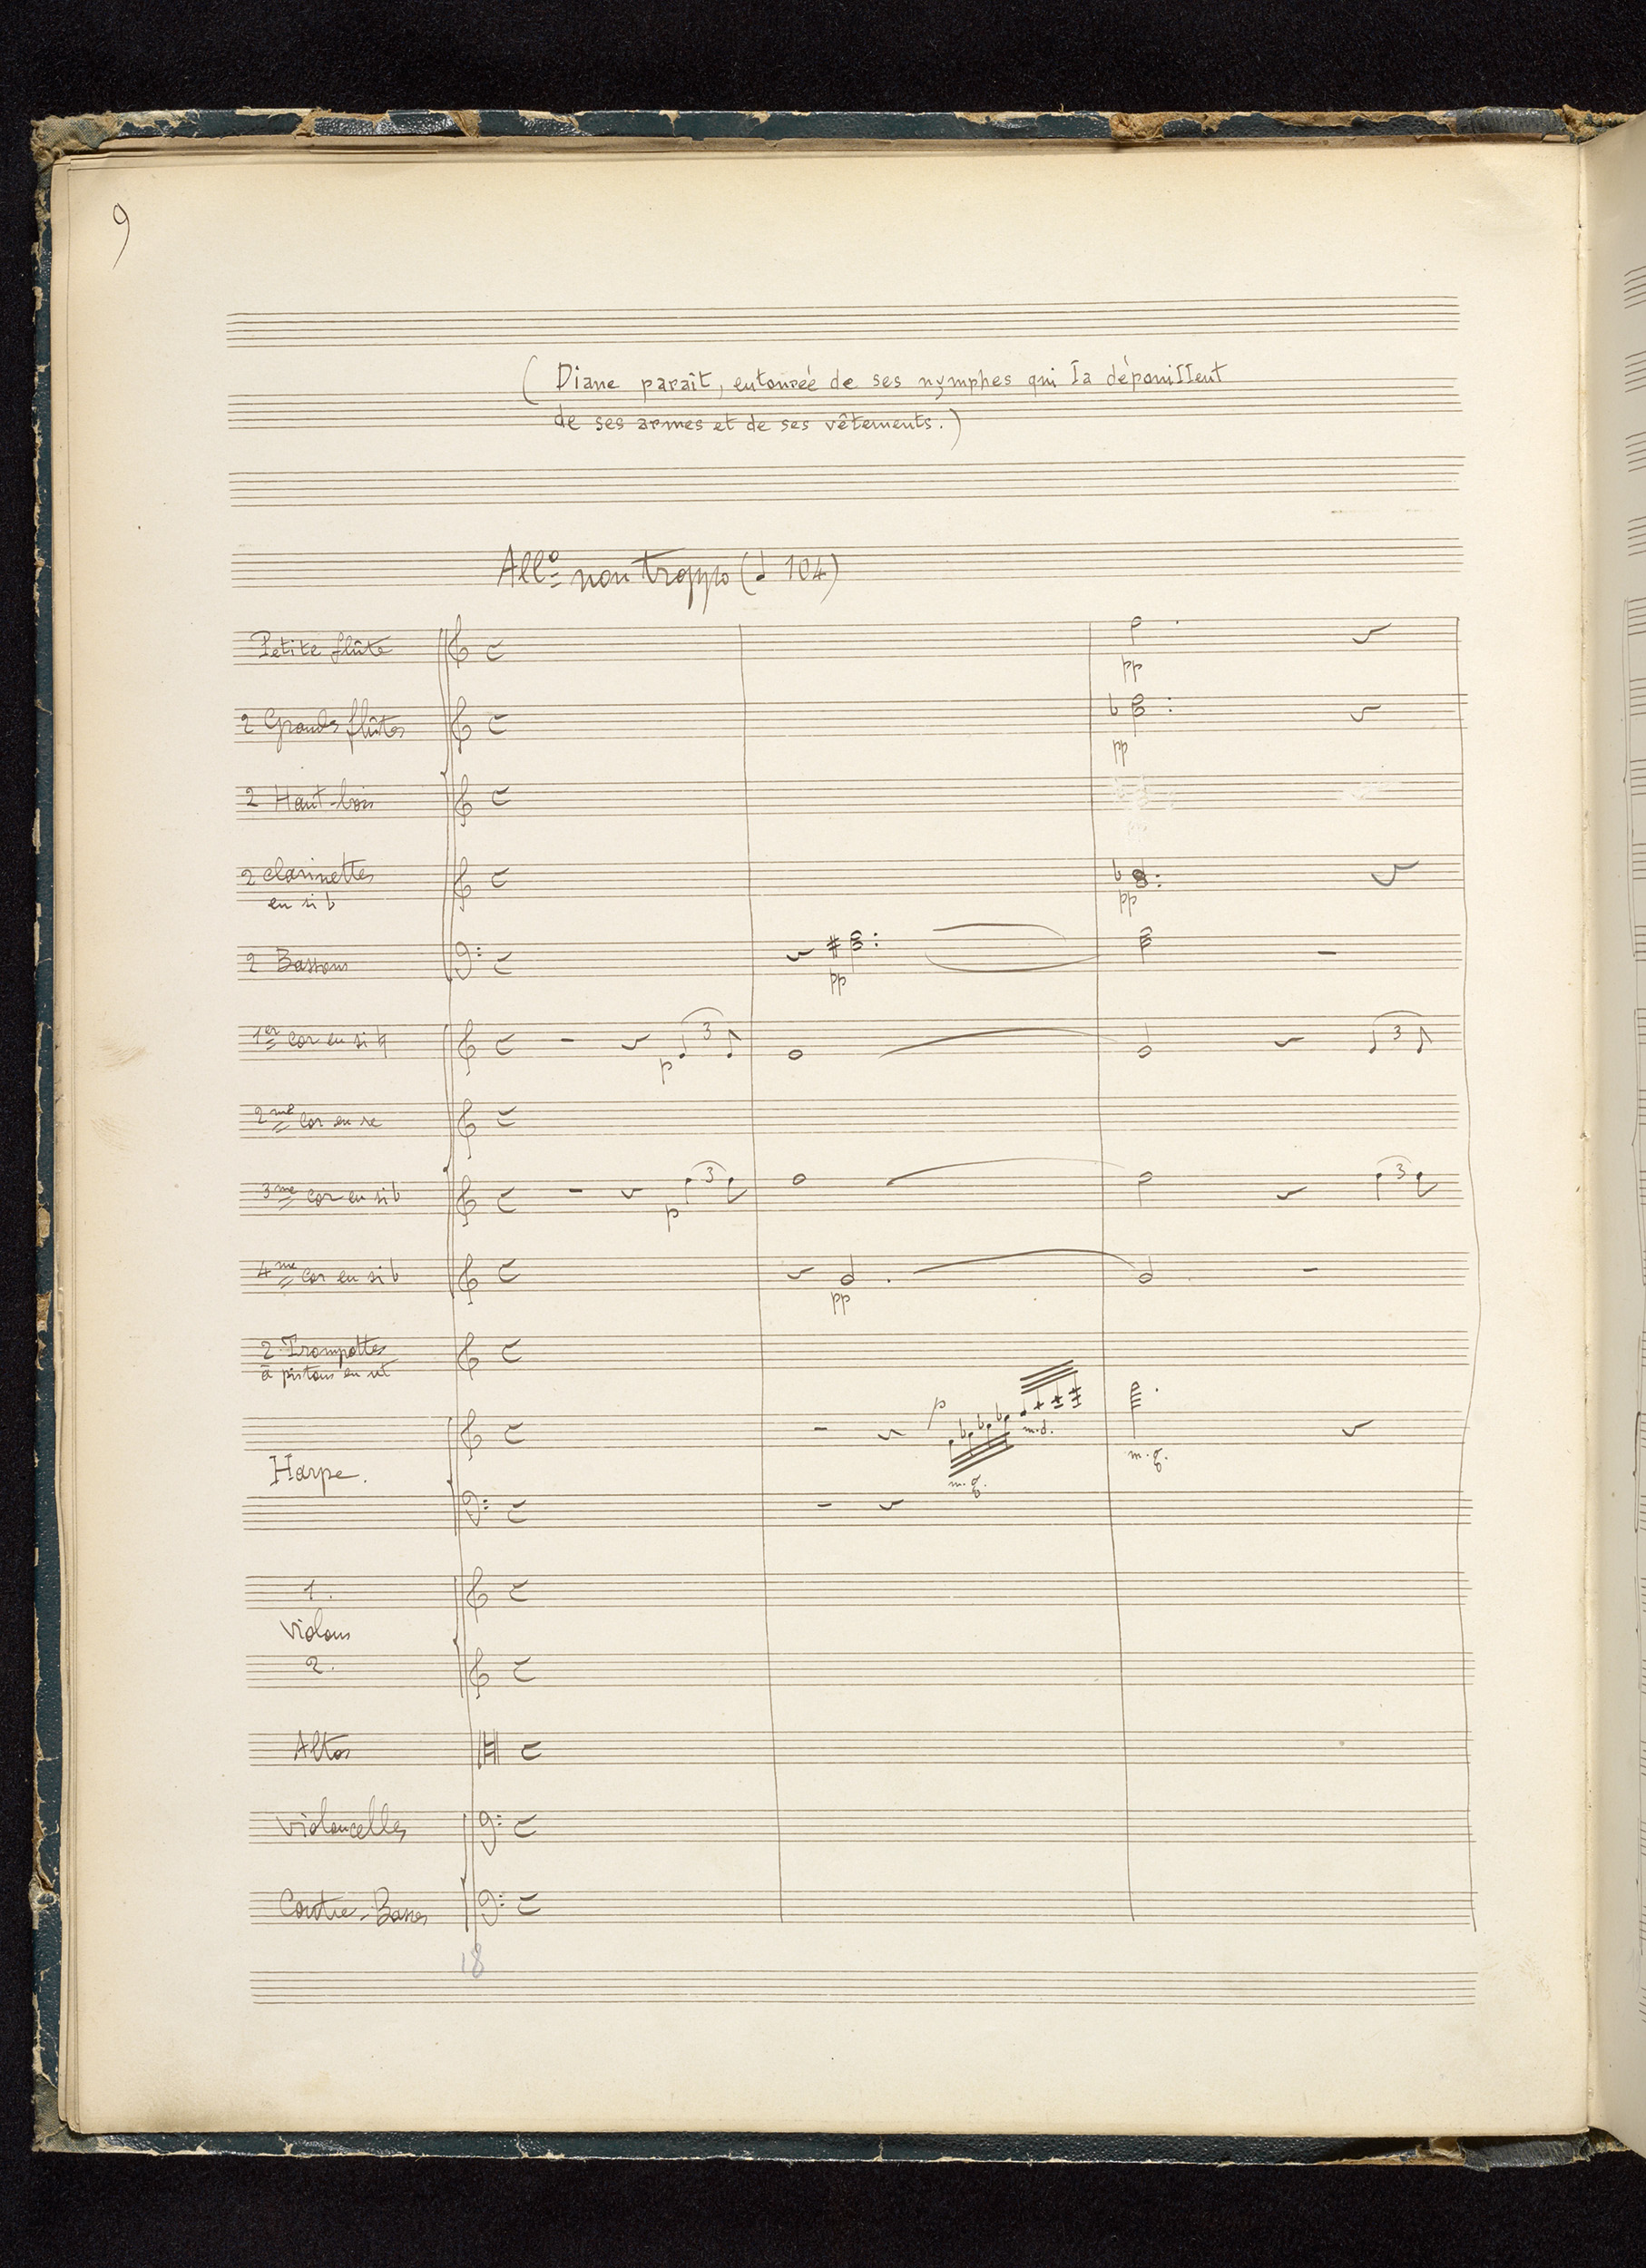 9
( Diane paraît, entourée de ses nymphes qui la dépouillent
de ses armes et de ses vêtements. )
All.º non troppo (♩ 104)
Petite flûte
pp
2 Grandes flûtes
pp
2 Haut-bois
2 clarinettes
en si b
pp
2 Bassons
pp
1er cor en si ♮
p 3
3
2me cor en re
3me cor en si b
p 3
3
4me cor en si b
pp
2 Trompettes
à pistons en ut
Harpe.
p
m.d.
m.g.
m.g.
1.
Violons
2.
Altos
Violoncelles
Contre-Basses
18